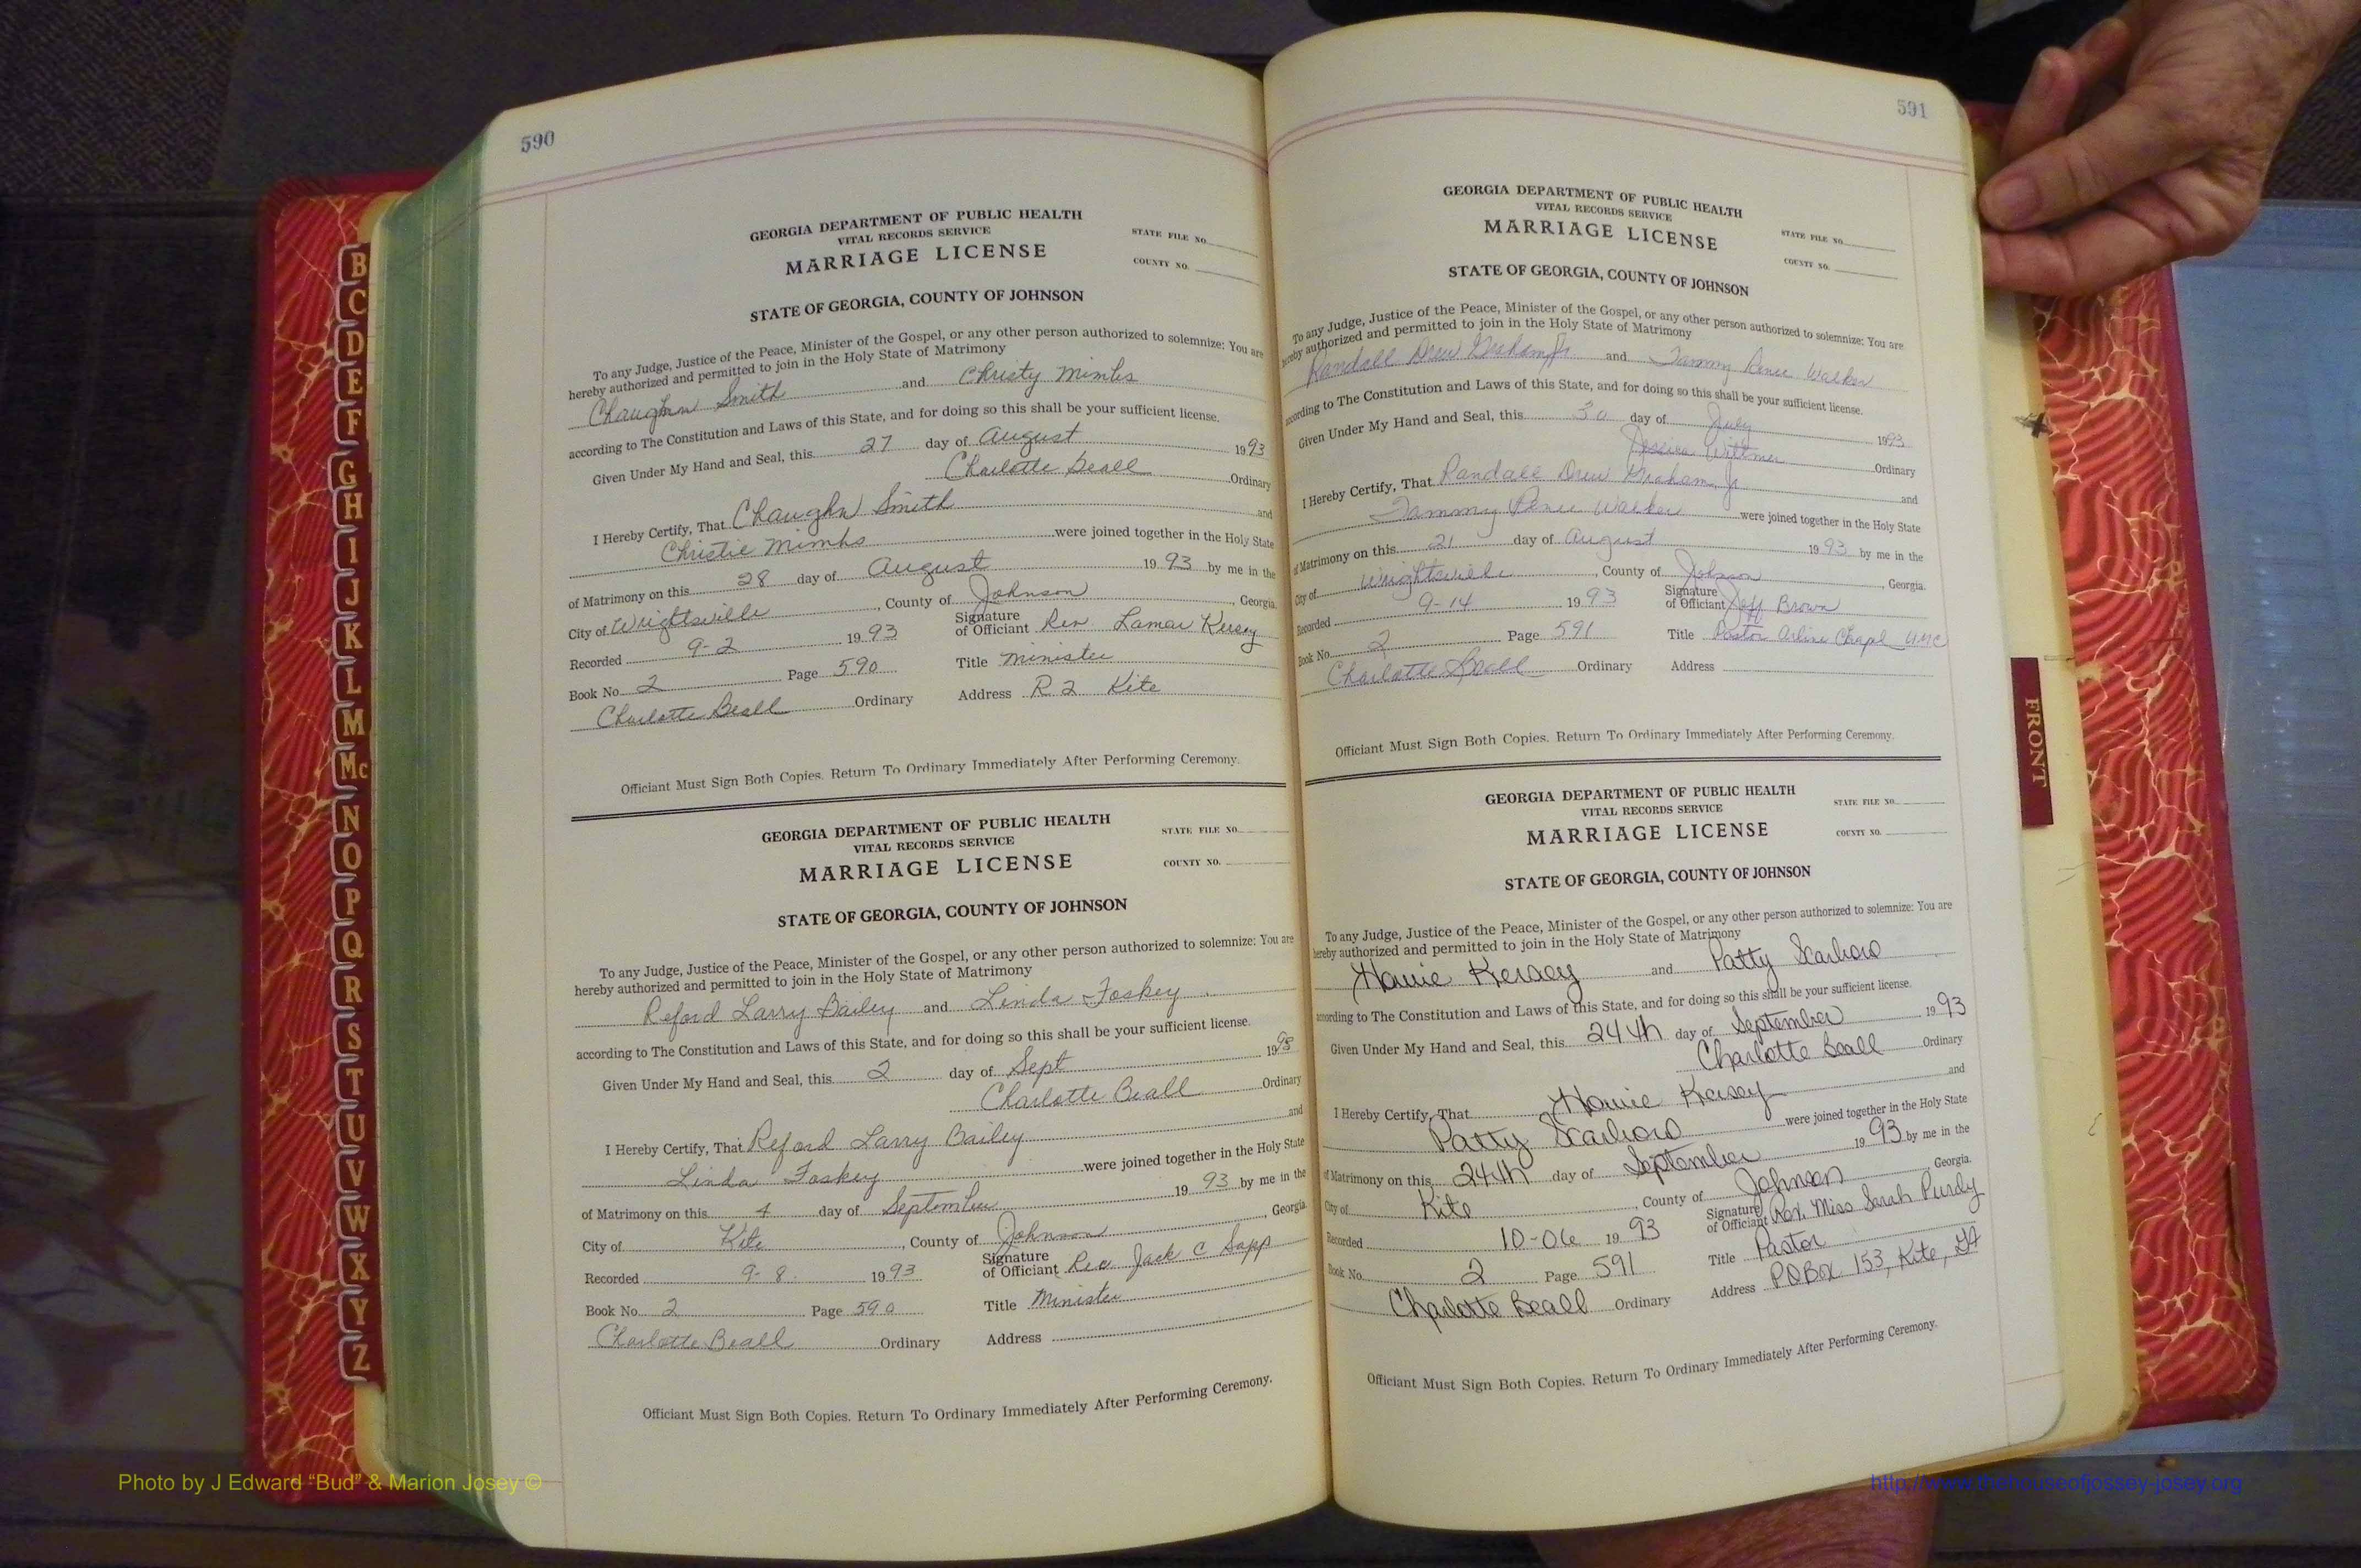 590
GEORGIA DEPARTMENT OF PUBLIC HEALTH
VITAL RECORDS SERVICE
MARRIAGE LICENSE
STATE FILE NO.
COUNTY NO.
STATE OF GEORGIA, COUNTY OF JOHNSON
To any Judge, Justice of the Peace, Minister of the Gospel, or any other person authorized to solemnize: You are
hereby authorized and permitted to join in the Holy State of Matrimony
Chaughn Smith and Christy Mimbs
according to The Constitution and Laws of this State, and for doing so this shall be your sufficient license.
Given Under My Hand and Seal, this 27 day of August 1993
Charlotte Beall Ordinary
I Hereby Certify, That Chaughn Smith and
Christie Mimbs were joined together in the Holy State
of Matrimony on this 28 day of August 1993 by me in the
City of Wrightsville, County of Johnson, Georgia.
Recorded 9-2 1993 Signature of Officiant Rev. Lamar Kersey
Book No. 2 Page 590 Title Minister
Charlotte Beall Ordinary Address R 2 Kite
Officiant Must Sign Both Copies. Return To Ordinary Immediately After Performing Ceremony.
GEORGIA DEPARTMENT OF PUBLIC HEALTH
VITAL RECORDS SERVICE
MARRIAGE LICENSE
STATE FILE NO.
COUNTY NO.
STATE OF GEORGIA, COUNTY OF JOHNSON
To any Judge, Justice of the Peace, Minister of the Gospel, or any other person authorized to solemnize: You are
hereby authorized and permitted to join in the Holy State of Matrimony
Reford Larry Bailey and Linda Foskey
according to The Constitution and Laws of this State, and for doing so this shall be your sufficient license.
Given Under My Hand and Seal, this 2 day of Sept 19
Charlotte Beall Ordinary
I Hereby Certify, That Reford Larry Bailey and
Linda Foskey were joined together in the Holy State
of Matrimony on this 4 day of September 1993 by me in the
City of Kite, County of Johnson, Georgia.
Recorded 9-8 1993 Signature of Officiant Rev Jack C Sapp
Book No. 2 Page 590 Title Minister
Charlotte Beall Ordinary Address
Officiant Must Sign Both Copies. Return To Ordinary Immediately After Performing Ceremony.
591
GEORGIA DEPARTMENT OF PUBLIC HEALTH
VITAL RECORDS SERVICE
MARRIAGE LICENSE
STATE FILE NO.
COUNTY NO.
STATE OF GEORGIA, COUNTY OF JOHNSON
To any Judge, Justice of the Peace, Minister of the Gospel, or any other person authorized to solemnize: You are
hereby authorized and permitted to join in the Holy State of Matrimony
Randall Drew Graham Jr. and Tammy Renee Walker
according to The Constitution and Laws of this State, and for doing so this shall be your sufficient license.
Given Under My Hand and Seal, this 30 day of July 1993
Jessica Wittmer Ordinary
I Hereby Certify, That Randall Drew Graham, Jr and
Tammy Renee Walker were joined together in the Holy State
of Matrimony on this 21 day of August 1993 by me in the
City of Wrightsville, County of Johnson, Georgia.
Recorded 9-14 1993 Signature of Officiant Jeff Brown
Book No. 2 Page 591 Title Pastor Arline Chapel UMC
Charlotte Beall Ordinary Address
Officiant Must Sign Both Copies. Return To Ordinary Immediately After Performing Ceremony.
GEORGIA DEPARTMENT OF PUBLIC HEALTH
VITAL RECORDS SERVICE
MARRIAGE LICENSE
STATE FILE NO.
COUNTY NO.
STATE OF GEORGIA, COUNTY OF JOHNSON
To any Judge, Justice of the Peace, Minister of the Gospel, or any other person authorized to solemnize: You are
hereby authorized and permitted to join in the Holy State of Matrimony
Kersey and Patty Scarboro
according to The Constitution and Laws of this State, and for doing so this shall be your sufficient license.
Given Under My Hand and Seal, this 24th day of September 1993
Charlotte Beall Ordinary
I Hereby Certify, That Kersey and
Patty Scarboro were joined together in the Holy State
of Matrimony on this 24th day of September 1993 by me in the
City of Kite, County of Johnson, Georgia.
Recorded 10-06 1993 Signature of Officiant Rev. Miss Sarah Purdy
Book No. 2 Page 591 Title Pastor
Charlotte Beall Ordinary Address P.O Box 153, Kite, GA
Officiant Must Sign Both Copies. Return To Ordinary Immediately After Performing Ceremony.
B
C
D
E
F
G
H
I
J
K
L
M
Mc
N
O
P
Q
R
S
T
U
V
W
X
Y
Z
FRONT
Photo by J Edward “Bud” & Marion Josey ©
http://www.thehouseofjossey-josey.org